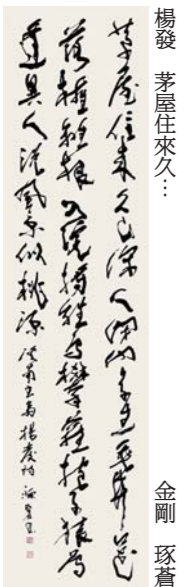 楊發 茅屋住來久…
金剛 琢蒼
茅屋住來久山深不置門草生垂井口花
落擁籬根入院將雛鳥攀蘿抱子猿曾
逢異人說風景似桃源 楊發詩